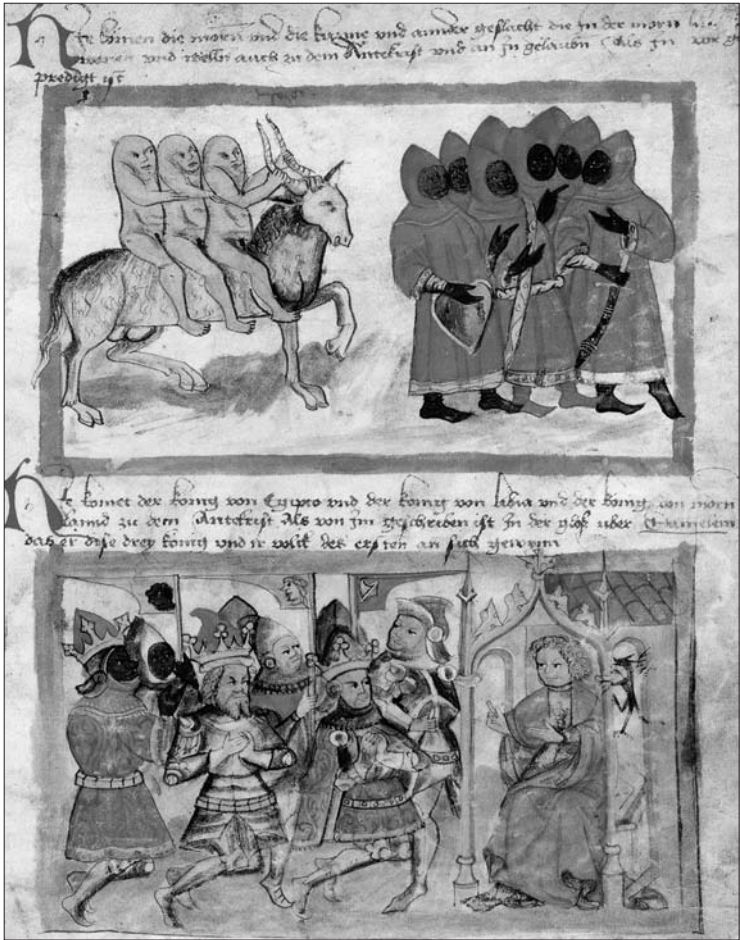 Hie komen die morn und die und ander geslacht die in der morn
waren und wellen auch zu dem Antekrist und an in gelauben Als in vor
predigt ist
Hie komet der konig von Egipto und der konig von libia und der konig von morn
lannd zu dem Antekrist Als von im geschriben ist in der glos uber Danielem
das er dise drey konig und ir volck des ersten an sich gewynn